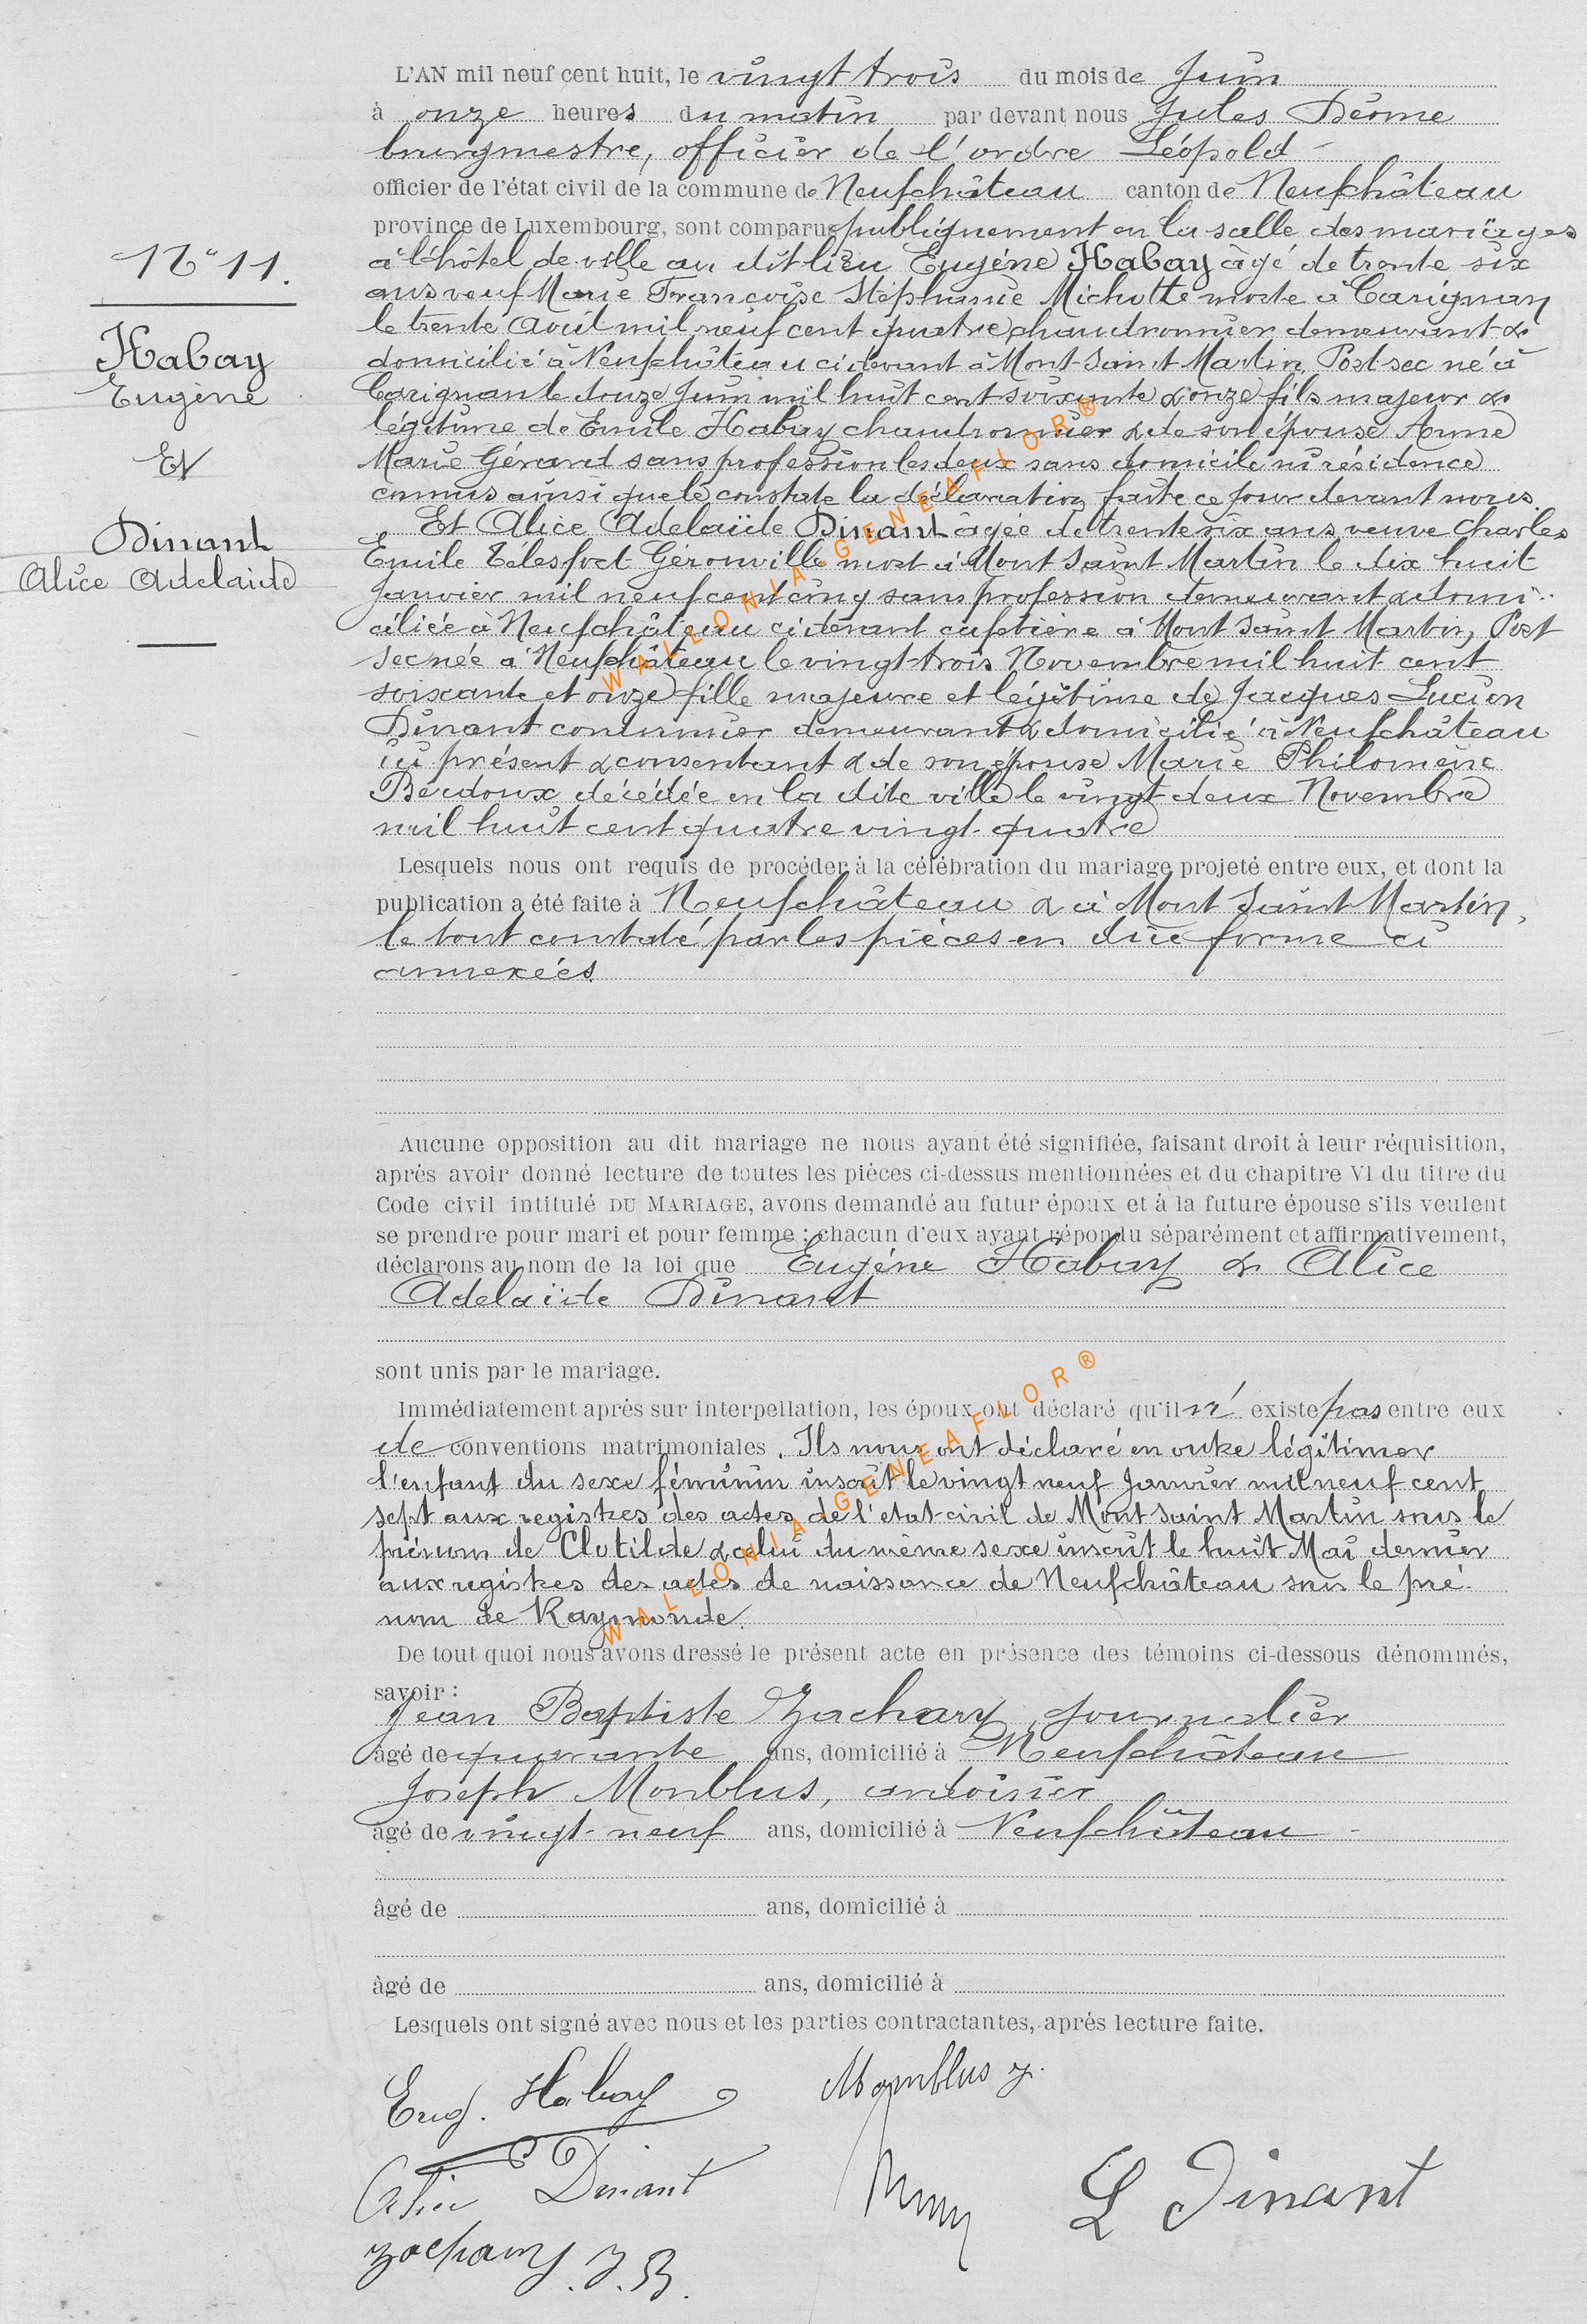 N° 11.
Habay
Eugène
Et
Dinant
Alice Adelaide
L'AN mil neuf cent huit, le vingt trois du mois de Juin
à onze heures du matin par devant nous Jules Dérome
bourgmestre, officier de l'ordre Léopold -
officier de l'état civil de la commune de Neufchâteau canton de Neufchâteau
province de Luxembourg, sont comparus publiquement en la salle des mariages
à l'hôtel de ville au dit lieu Eugène Habay âgé de trente six
ans veuf Marie Françoise Stéphanie Michotte morte à Carignan
le trente Août mil neuf cent quatre chaudronnier demeurant &
domicilié à Neufchâteau ci devant à Mont Saint Martin, Post sec né à
Carignan le douze Juin mil huit cent soixante & onze fils majeur &
légitime de Emile Habay chaudronnier & de son épouse Anne
Marie Gérard sans profession les deux sans domicile ni résidence
connus ainsi que le constate la déclaration faite ce jour devant nous.
Et Alice Adelaïde Dinant âgée de trente six ans veuve Charles
Emile Télesfort Gérouville mort à Mont Saint Martin le dix huit
Janvier mil neuf cent cinq sans profession demeurant & domi-
ciliée à Neufchâteau ci devant cafetière à Mont Saint Martin, Post
sec née à Neufchâteau le vingt-trois Novembre mil huit cent
soixante et onze fille majeure et légitime de Jacques Lucien
Dinant cantonnier demeurant & domicilié à Neufchâteau
ici présent & consentant & de son épouse Marie Philomène
Baudoux décédée en la dite ville le vingt deux Novembre
mil huit cent quatre vingt-quatre
Lesquels nous ont requis de procéder à la célébration du mariage projeté entre eux, et dont la
publication a été faite à Neufchâteau & à Mont Saint Martin,
le tout constaté par les pièces en due forme ci
annexées.
Aucune opposition au dit mariage ne nous ayant été signifiée, faisant droit à leur réquisition,
après avoir donné lecture de toutes les pièces ci-dessus mentionnées et du chapitre VI du titre du
Code civil intitulé DU MARIAGE, avons demandé au futur époux et à la future épouse s'ils veulent
se prendre pour mari et pour femme ; chacun d'eux ayant répondu séparément et affirmativement,
déclarons au nom de la loi que Eugène Habay & Alice
Adelaïde Dinant
sont unis par le mariage.
Immédiatement après sur interpellation, les époux ont déclaré qu'il n' existe pas entre eux
de conventions matrimoniales. Ils nous ont déclaré en outre légitimer
l'enfant du sexe féminin inscrit le vingt neuf Janvier mil neuf cent
sept aux registres des actes de l'etat-civil de Mont Saint Martin sous le
prénom de Clotilde & celui du même sexe inscrit le huit Mai dernier
aux registres des actes de naissance de Neufchâteau sous le pré-
nom de Raymonde.
De tout quoi nous avons dressé le présent acte en présence des témoins ci-dessous dénommés,
savoir :
Jean Baptiste Zachary, journalier
âgé de quarante ans, domicilié à Neufchâteau
Joseph Monblus, ardoisier
âgé de vingt-neuf ans, domicilié à Neufchâteau -
âgé de ans, domicilié à
âgé de ans, domicilié à
Lesquels ont signé avec nous et les parties contractantes, après lecture faite.
Eug. Habay Momblus J.
Alice Dinant L Dinant
Zachary J. B.
WALLONIA GENEAFLOR®
WALLONIA GENEAFLOR®